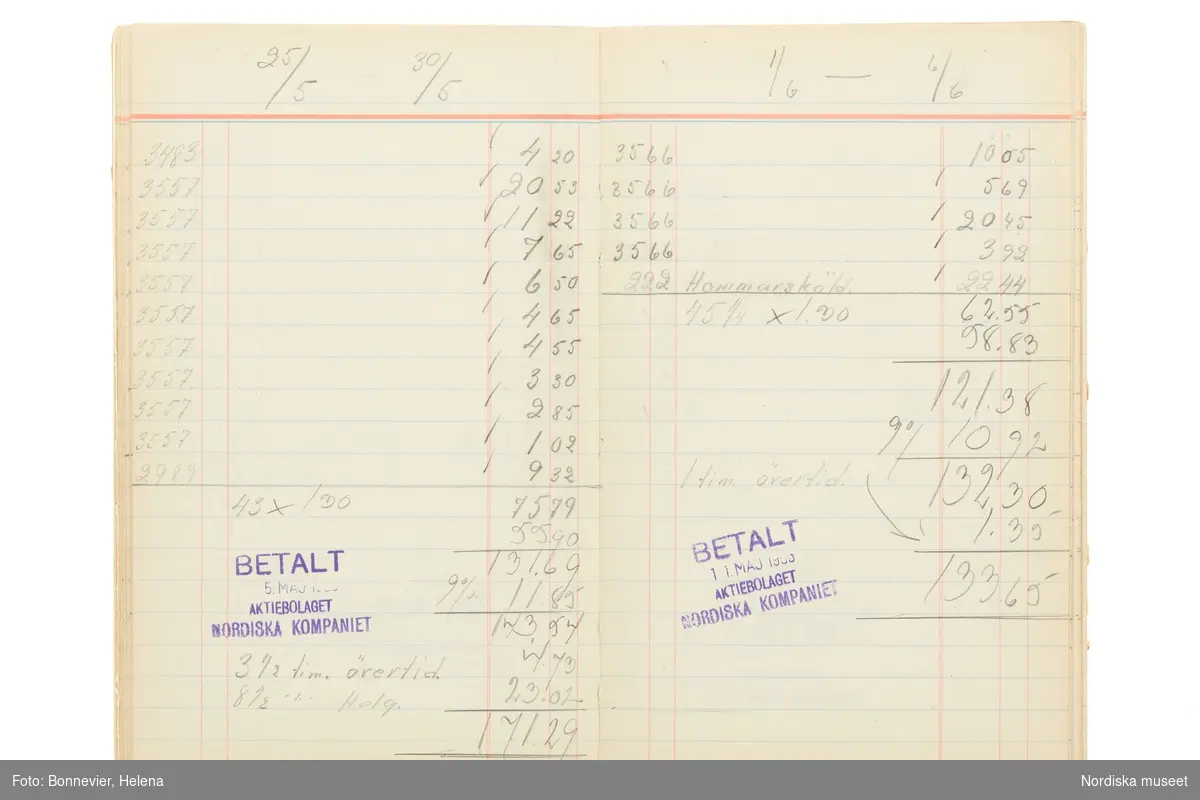 25/5 30/5
3483 4 20
3557 20 53
3557 11 22
3557 7 65
3557 6 50
3557 4 65
3557 4 55
3557 3 30
3557 2 85
3557 1 02
2989 9 32
43 x 1 30 75 79
55.90
131.69
9%. 11.85
143.54
3 1/2 tim. övertid. 4.73
8 1/2 -"- Helg. 23.02
171.29
BETALT
5. MAJ
AKTIEBOLAGET
NORDISKA KOMPANIET
1/6 — 6/6
3566 10 05
3566 5 69
3566 20 45
3566 3 92
222 Hammarsköld. 22 44
45 1/4 x 1.30 62.55
58.83
121.38
9% 10.92
1 tim. övertid. 132,30
1.35
133,65
BETALT
11. MAJ 1936
AKTIEBOLAGET
NORDISKA KOMPANIET
Foto: Bonnevier, Helena
Nordiska museet